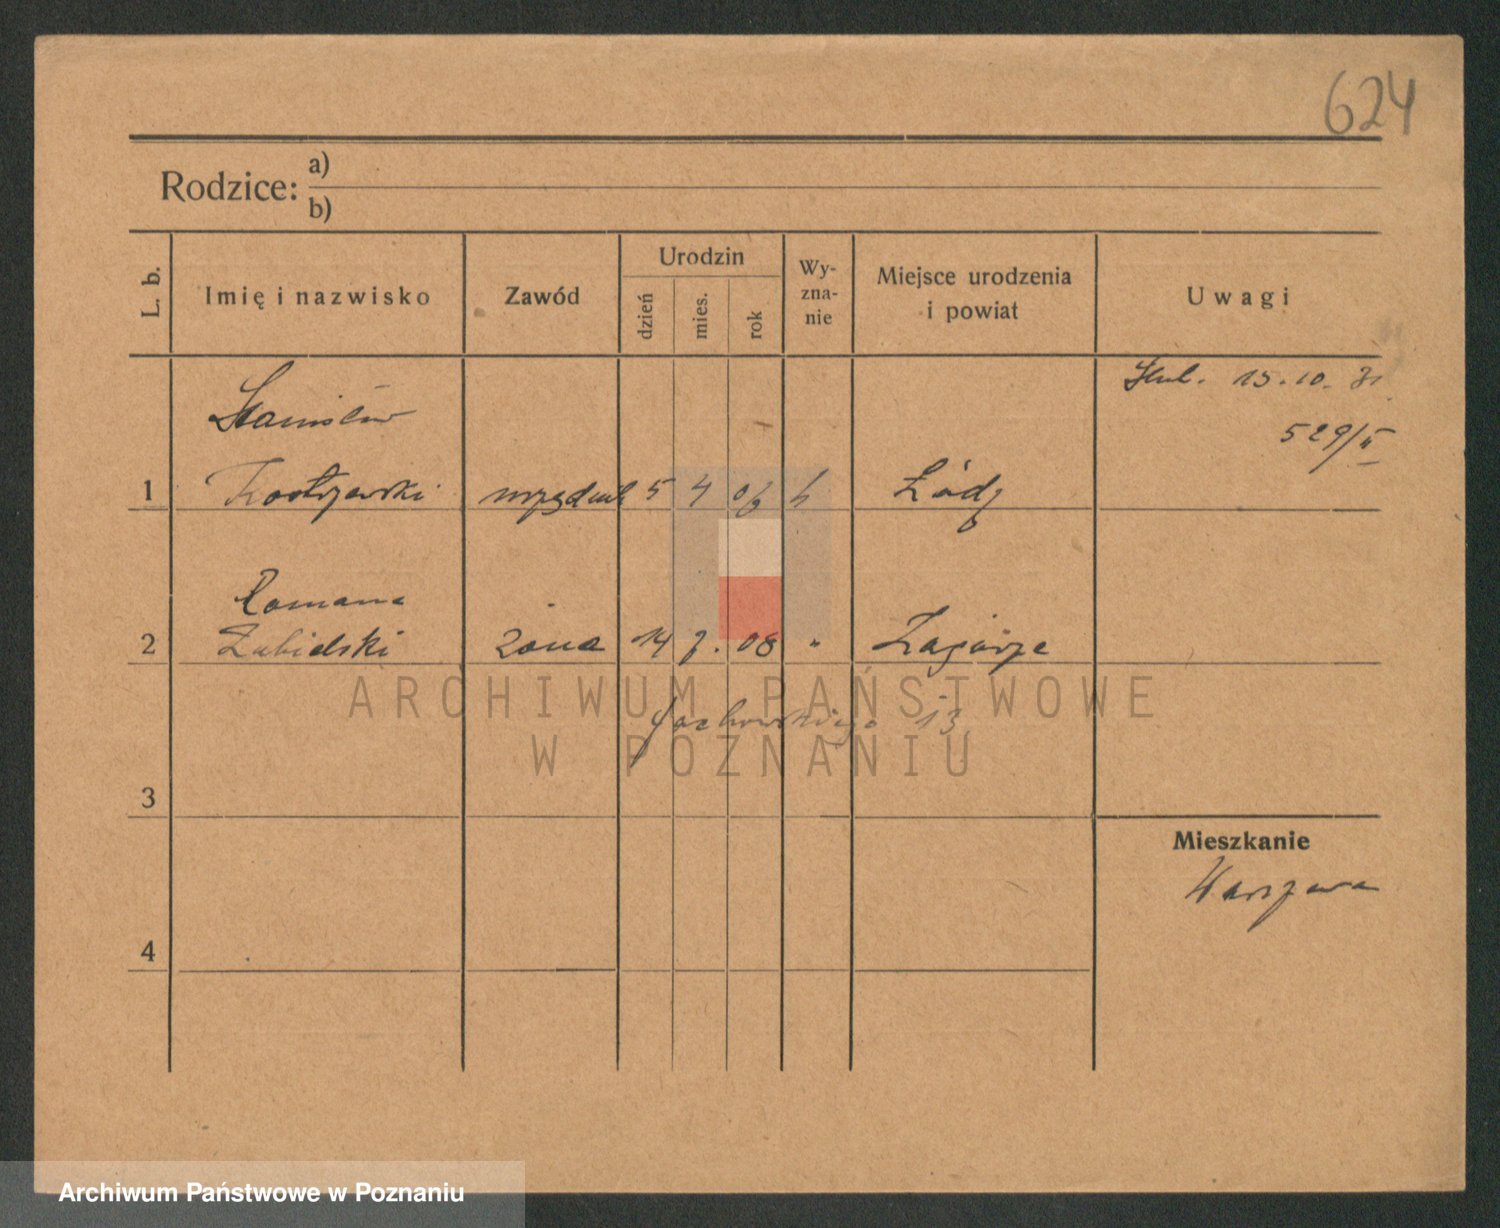 624
Rodzice: a)
b)
L. b.
Imię i nazwisko
Zawód
Urodzin
dzień
mies.
rok
Wy-
zna-
nie
Miejsce urodzenia
i powiat
Uwagi
15.10.31
529/II
Stanisław
1 Kostrzewski 5 4 06 Łódź
Romana
2 żona 14 08 " Zagórze
13
ARCHIWUM PAŃSTWOWE
W POZNANIU
3
Mieszkanie
Warszawa
4
Archiwum Państwowe w Poznaniu